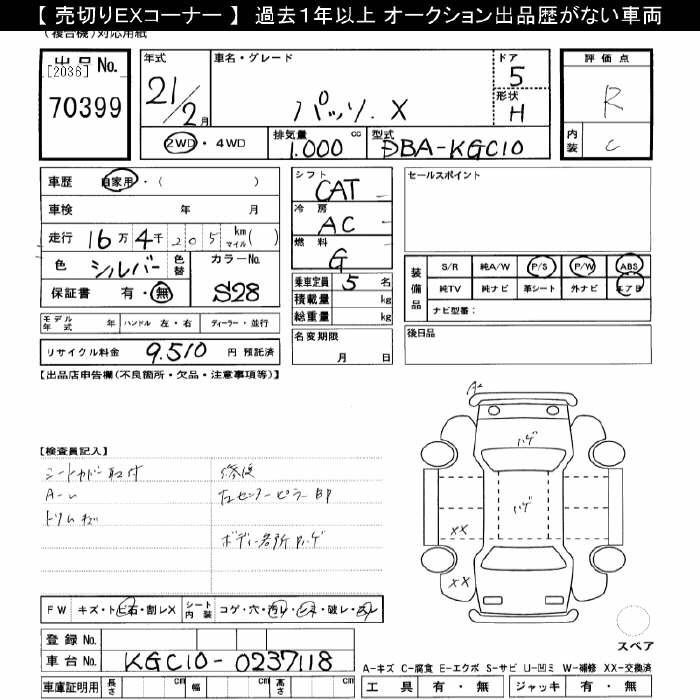 【 売切りEXコーナー 】 過去1年以上 オークション出品歴がない車両
(複合機)対応用紙
出品 No.
[2036]
70399
年式
21/2月
車名・グレード
パッソ. X
ドア
5
形状
H
評価点
R
内装
C
2WD ・ 4WD
排気量 cc
1.000
型式
DBA-KGC10
車歴 自家用・( )
車検 年 月
走行 16万4千205 km マイル( )
色 シルバー 色替 カラーNo.
保証書 有・無 S28
シフト
CAT
冷房
AC
燃料
G
乗車定員 5 名
積載量 kg
総重量 kg
セールスポイント
装備品
S/R 純A/W P/S P/W ABS
純TV 純ナビ 革シート 外ナビ エアB
ナビ型番:
モデル年式 年 ハンドル 左・右 ディーラー・並行
リサイクル料金 9.510 円 預託済
名変期限
月 日
後日品
【出品店申告欄(不良箇所・欠品・注意事項等)】
【検査員記入】
シートカバー取付
修復
左センターピラー
ボディー各所ハゲ
A2
ハゲ
ハゲ
XX
XX
FW キズ・トビ石・割レX シート内装 コゲ・穴・汚レ
破レ
登録 No.
車台 No. KGC10-0237118
車庫証明用 長さ cm 幅 cm 高さ cm
スペア
A-キズ C-腐食 E-エクボ S-サビ U-凹ミ W-補修 XX-交換済
工具 有・無 ジャッキ 有・無